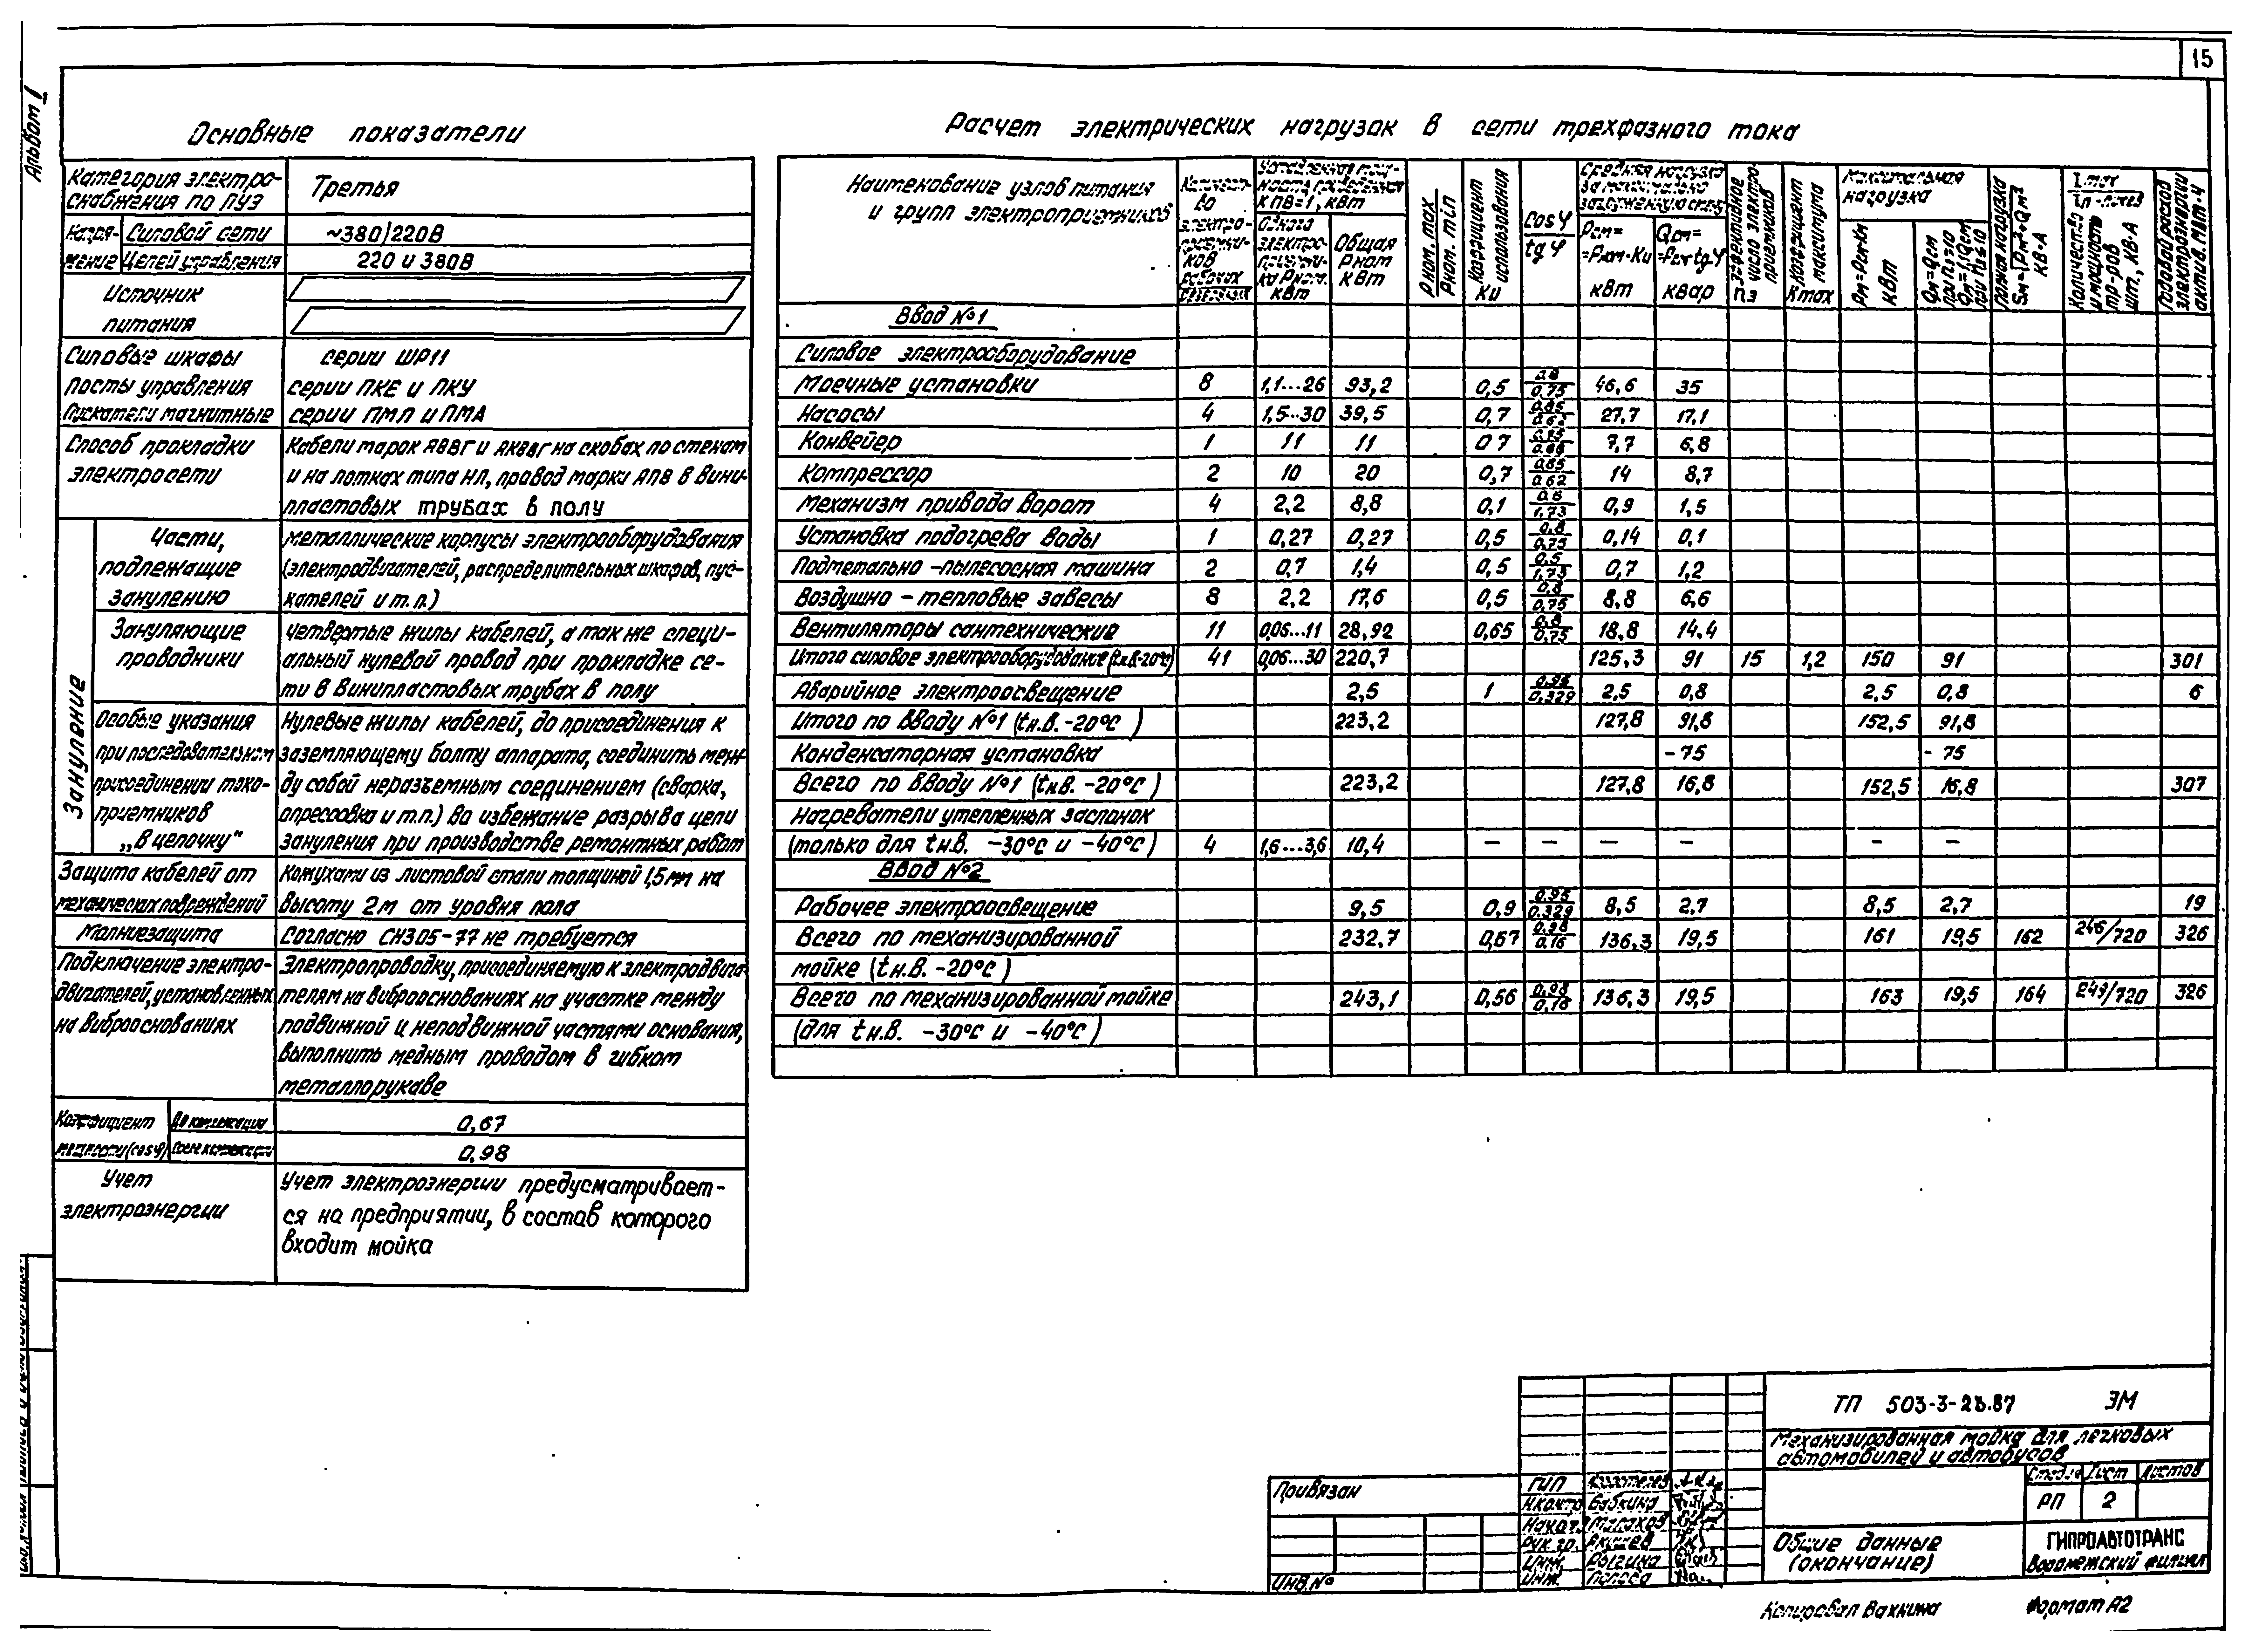 15
Альбом I
Основные показатели
Категория электро-
снабжения по ПУЭ
Третья
Напря-
жение
Силовой сети
~380/220В
Цепей управления
220 и 380В
Источник
питания
Силовые шкафы
серии ШР11
Посты управления
серии ПКЕ и ПКУ
Пускатели магнитные
серии ПМЛ и ПМА
Способ прокладки
электросети
Кабели марок АВВГ и АКВВГ на скобах по стенам
и на лотках типа НЛ, провод марки АПВ в вини-
пластовых трубах в полу
Зануление
Части,
подлежащие
занулению
металлические корпусы электрооборудования
(электродвигателей, распределительных шкафов, пус-
кателей и т.п.)
Зануляющие
проводники
четвертые жилы кабелей, а так же специ-
альный нулевой провод при прокладке се-
ти в винипластовых трубах в полу
Особые указания
при последовательном
присоединении токо-
приемников
„в цепочку"
Нулевые жилы кабелей, до присоединения к
заземляющему болту аппарата, соединить меж-
ду собой неразъемным соединением (сварка,
опрессовка и т.п.) во избежание разрыва цепи
зануления при производстве ремонтных работ
Защита кабелей от
механических повреждений
Кожухами из листовой стали толщиной 1,5мм на
высоту 2м от уровня пола
Молниезащита
Согласно СН305-77 не требуется
Подключение электро-
двигателей, установленных
на виброоснованиях
Электропроводку, присоединяемую к электродвига-
телям на виброоснованиях на участке между
подвижной и неподвижной частями основания,
выполнить медным проводом в гибком
металлорукаве
Коэффициент
мощности (cosφ)
До компенсации
0,67
После компенсации
0,98
Учет
электроэнергии
Учет электроэнергии предусматривает-
ся на предприятии, в состав которого
входит мойка
Расчет электрических нагрузок в сети трехфазного тока
Наименование узлов питания
и групп электроприемников
Количест-
во
электро-
приемни-
ков
рабочих
Установленная мощ-
ность приведенная
к ПВ=1, кВт
Одного
электро-
приемни-
ка Рном.
кВт
Общая
Рном
кВт
Рном. max
Рном. min
Коэффициент
использования
Ки
Cosφ
tgφ
Средняя нагрузка
за максимально
загруженную смену
Рсм=
=Рном·Ки
кВт
Qсм=
=Рсм·tgφ
квар
Эффективное
число электро-
приемников
nэ
Коэффициент
максимума
Kmax
Максимальная
нагрузка
Рм=Рсм·Км
кВт
Qм=Qсм
при nэ>10
Qм=1,1Qсм
при nэ≤10
Полная нагрузка
Sм=√Рм²+Qм²
кВ·А
Количество
и мощность
тр-ров
шт., кВ·А
Годовой расход
электроэнергии
актив. МВт·ч
Ввод №1
Силовое электрооборудование
Моечные установки 8 1,1...26 93,2 0,5 0,8/0,75 46,6 35
Насосы 4 1,5...30 39,5 0,7 0,85/0,62 27,7 17,1
Конвейер 1 11 11 0,7 7,7 6,8
Компрессор 2 10 20 0,7 0,85/0,62 14 8,7
Механизм привода ворот 4 2,2 8,8 0,1 0,5/1,73 0,9 1,5
Установка подогрева воды 1 0,27 0,27 0,5 0,8/0,75 0,14 0,1
Подметально-пылесосная машина 2 0,7 1,4 0,5 0,5/1,73 0,7 1,2
Воздушно-тепловые завесы 8 2,2 17,6 0,5 0,8/0,75 8,8 6,6
Вентиляторы сантехнические 11 0,06...11 28,92 0,65 0,8/0,75 18,8 14,4
Итого силовое электрооборудование (tн.в.-20°С) 41 0,06...30 220,7 125,3 91 15 1,2 150 91 301
Аварийное электроосвещение 2,5 1 0,95/0,329 2,5 0,8 2,5 0,8 6
Итого по Вводу №1 (tн.в. -20°С) 223,2 127,8 91,8 152,5 91,8
Конденсаторная установка -75 -75
Всего по Вводу №1 (tн.в. -20°С) 223,2 127,8 16,8 152,5 16,8 307
Нагреватели утепленных заслонок
(только для tн.в. -30°С и -40°С) 4 1,6...3,6 10,4 – – – – – –
Ввод №2
Рабочее электроосвещение 9,5 0,9 0,95/0,329 8,5 2,7 8,5 2,7 19
Всего по механизированной 232,7 0,57 0,98/0,16 136,3 19,5 161 19,5 162 246/720 326
мойке (tн.в. -20°С)
Всего по механизированной мойке 243,1 0,56 0,98/0,16 136,3 19,5 163 19,5 164 249/720 326
(для tн.в. -30°С и -40°С)
ТП 503-3-28.87 ЭМ
Механизированная мойка для легковых
автомобилей и автобусов
Стадия Лист Листов
РП 2
Общие данные
(окончание)
ГИПРОАВТОТРАНС
Воронежский филиал
Привязан
Инв.№
ГИП
Н.контр. Бабкина
Нач.отд. Малахов
Рук.гр. Акишев
Инж.
Инж. Попова
Копировал Вахнина
Формат А2